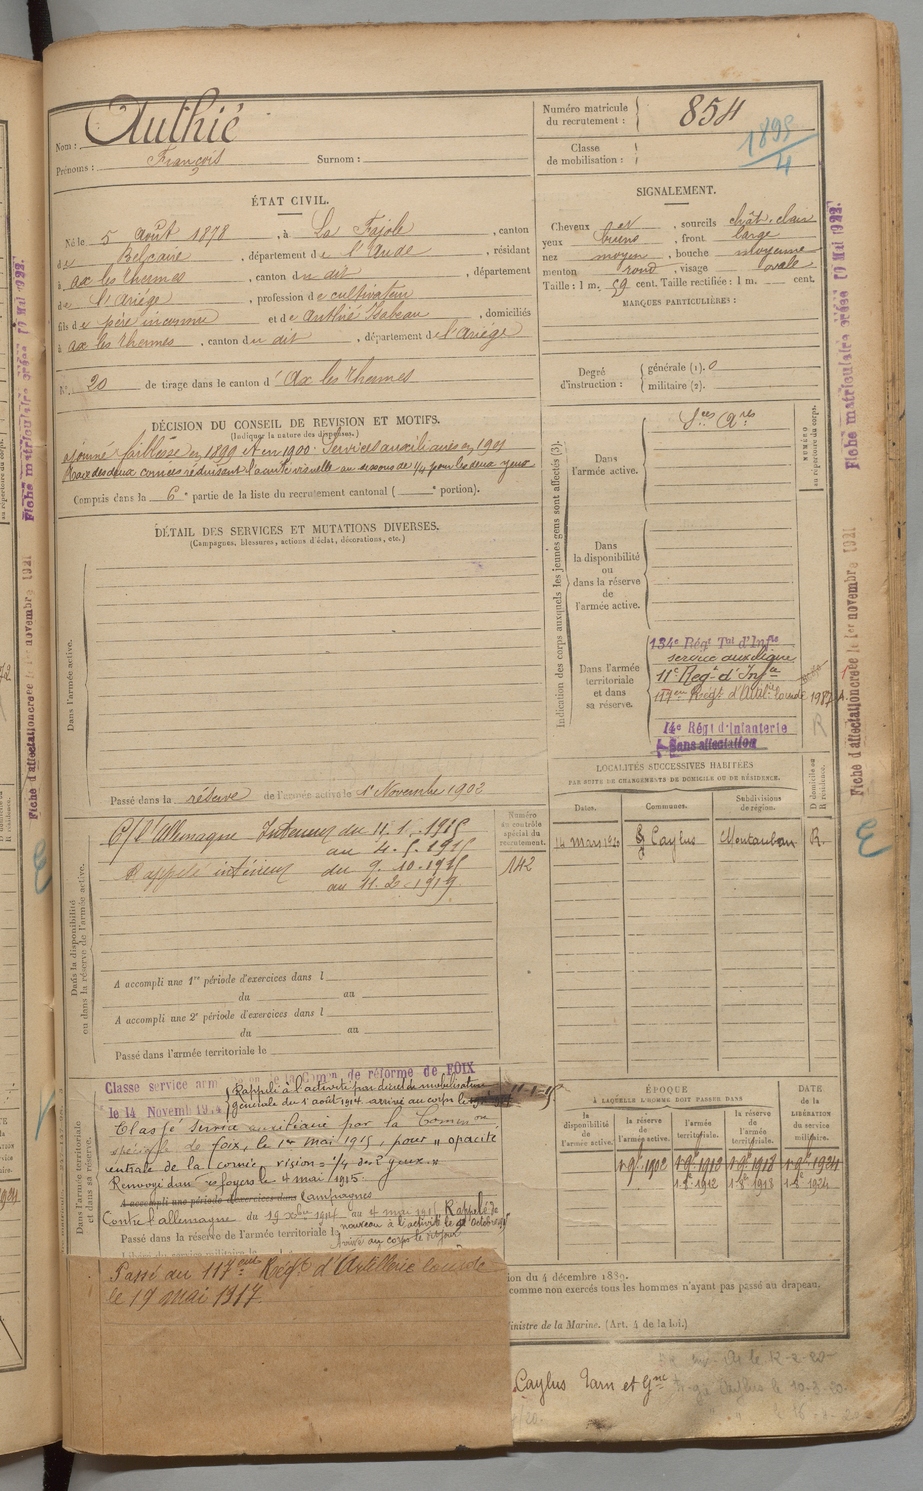 Nom : Authié
Prénoms : François Surnom :
Numéro matricule
du recrutement : 854
Classe
de mobilisation : 1898/4
ÉTAT CIVIL.
Né le 5 Août 1878, à La Fajole, canton
de Belcaire, département de l'Aude, résidant
à ax les thermes, canton du dit, département
de l'Ariége, profession de cultivateur
fils de père inconnu et de Authié Isabeau, domiciliés
à ax les thermes, canton du dit, département de l'Ariége
N° 20 de tirage dans le canton d' Ax les thermes
SIGNALEMENT.
Cheveux et, sourcils chât. clair
yeux bruns, front large
nez moyen, bouche moyenne
menton rond, visage ovale
Taille : 1 m. 59 cent. Taille rectifiée : 1 m. cent.
MARQUES PARTICULIÈRES :
Degré
d'instruction :
générale (1). 0
militaire (2).
DÉCISION DU CONSEIL DE REVISION ET MOTIFS.
(Indiquer la nature des dispenses.)
ajourné faiblesse en 1899 et en 1900. Services auxiliaires en 1901
Taix des deux cornées réduisant l'acuité visuelle au dessous de 1/4 pour les deux yeux
Compris dans la 6e partie de la liste du recrutement cantonal ( e portion).
DÉTAIL DES SERVICES ET MUTATIONS DIVERSES.
(Campagnes, blessures, actions d'éclat, décorations, etc.)
Dans l'armée active.
Passé dans la réserve de l'armée active le 1er Novembre 1902
Indication des corps auxquels les jeunes gens sont affectés (3).
Dans
l'armée active.
Sces Ares
NUMÉRO
au répertoire du corps.
Dans
la disponibilité
ou
dans la réserve
de
l'armée active.
Dans l'armée
territoriale
et dans
sa réserve.
134e Régt Tal d'Infie
service auxiliaire
11e Regt d'Infie
117eme Regt d'Artie lourde 1987
14e Régt d'Infanterie
Sans affectation
Dans la disponibilité
ou dans la réserve de l'armée active.
C/ l'Allemagne Intérieur du 11.1.1915
au 4.5.1915
Rappelé intérieur du 9.10.1915
au 11.2.1919
Numéro
au contrôle
spécial du
recrutement.
142
A accompli une 1re période d'exercices dans l
du au
A accompli une 2e période d'exercices dans l
du au
Passé dans l'armée territoriale le
LOCALITÉS SUCCESSIVES HABITÉES
PAR SUITE DE CHANGEMENTS DE DOMICILE OU DE RÉSIDENCE.
Dates. Communes. Subdivisions
de région. D domicile ou
R résidence.
14 Mars 1920 Caylus Montauban R.
Dans l'armée territoriale
et dans sa réserve.
Classé service armé Comon de réforme de FOIX
le 14 Novemb 1914
Rappelé à l'activité par décret de mobilisation
générale du 1er août 1914. arrivé au corps le 11-1-15
Classé service auxiliaire par la Common
spéciale de foix, le 1er mai 1915, pour " opacité
centrale de la cornée vision = 1/4 des 2 yeux "
Renvoyé dans ses foyers le 4 mai 1915.
A accompli une période d'exercices dans Campagnes
Contre l'allemagne du 19 Xbre 1914 au 4 mai 1915 Rappelé de
Passé dans la réserve de l'armée territoriale le nouveau à l'activité le 9 Octobre 1915
Arrivé au corps le dit jour
Passé au 117eme Régt d'Artillerie lourde
le 19 mai 1917
ÉPOQUE
À LAQUELLE L'HOMME DOIT PASSER DANS
DATE
de la
LIBÉRATION
du service
militaire.
la
disponibilité
de l'armée active.
la réserve
de
l'armée active.
l'armée
territoriale.
la réserve
de
l'armée
territoriale.
1 9bre 1902 1 9bre 1912 1 9bre 1918 1 9bre 1924
1912 1918 1924
comme non exercés tous les hommes n'ayant pas passé au drapeau.
Ministre de la Marine. (Art. 4 de la loi.)
Caylus Tarn et Gne
Fiche matriculaire créée 10 Mai 1922.
Fiche d'affectation créée le 1er novembre 1921
E